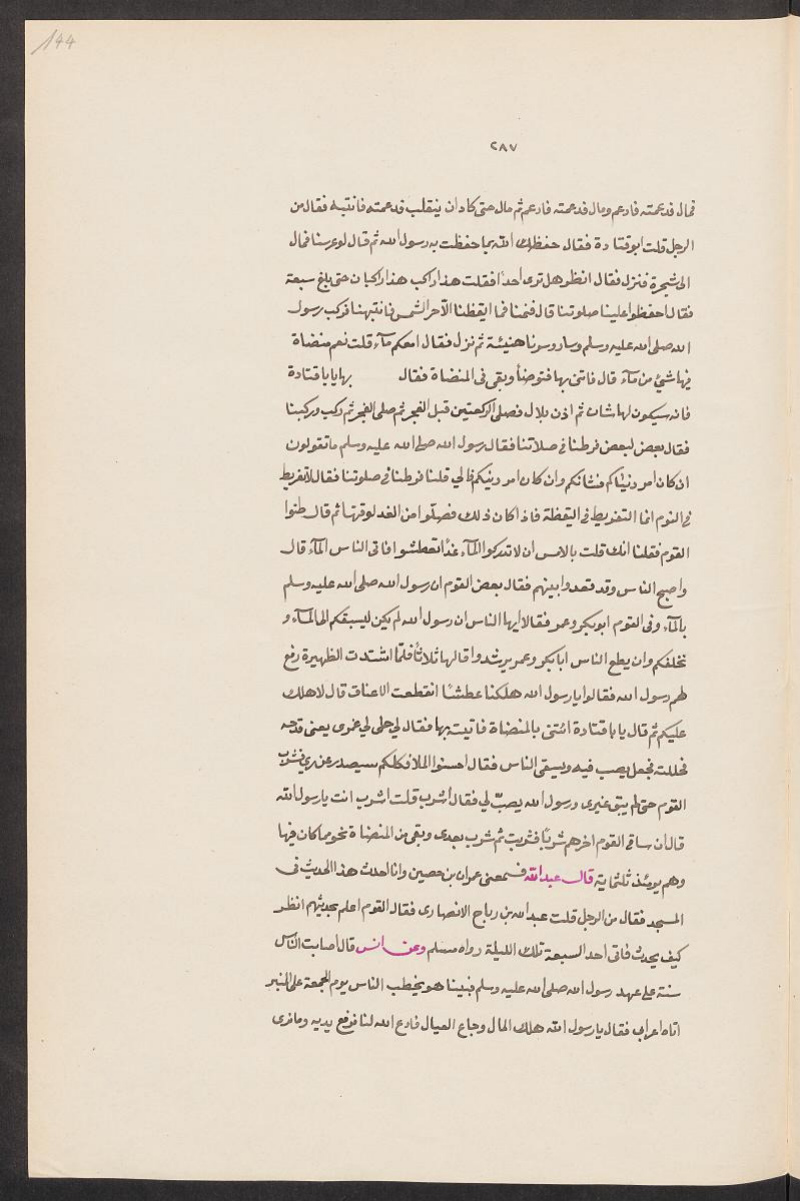 144
٢٨٧
فمال فدعمته فادعم ومال فدعمته فادعم ثم مال حتى كاد ان ينقلب فدعمته فانتبه فقال من
الرجل قلت ابوقتادة فقال حفظك الله بما حفظت به رسول الله ثم قال لوعرسنا فمال
الى شجرة فنزل فقال انظر هل ترى احدًا فقلت هذا راكب هذا راكبان حتى بلغ سبعة
فقال احفظوا علينا صلوتنا قال فنمنا فما ايقظنا الّا حر الشمس فانتبهنا فركب رسول
الله صلى الله عليه وسلم وسار وسرنا هنيئة ثم نزل فقال امعكم مآء قلت نعم منضاة
فيها شئ من مآء قال فائتنى بها فتوضأ وبقى فى المنضاة فقال بها يابا قتادة
فانه سيكون لها شان ثم اذن بلال فصلى الركعتين قبل الفجر ثم صلى الفجر ثم ركب وركبنا
فقال بعض لبعض فرطنا فى صلاتنا فقال رسول الله صلى الله عليه وسلم ما تقولون
ان كان امر دنياكم فشانكم وان كان امر دينكم فالي قلنا فرطنا فى صلوتنا فقال لا تفريط
فى النوم انما التفريط فى اليقظة فاذا كان ذلك فصلّوا من الغد لوقتها ثم قال ظنوا
القوم فقلنا انك قلت بالامس ان لا تدركوا المآء غدًا تعطشوا فاتى الناس المآء قال
واصبح الناس وقد فقدوا بينهم فقال بعض القوم ان رسول الله صلى الله عليه وسلم
بالمآء وفى القوم ابوبكر وعمر فقالا ايها الناس ان رسول الله لم يكن ليسبقكم الى المآء و
يخلفكم وان يطع الناس ابابكر وعمر يرشدوا قالها ثلاثًا فلمّا اشتدت الظهيرة رفع
لهم رسول الله فقالوا يا رسول الله هلكنا عطشًا انقطعت الاعناق قال لا هلك
عليكم ثم قال يابا قتادة ائتنى بالمنضاة فاتيته بها فقال لي حلى لي غمرى يعنى قدحه
فحللته فجعل يصب فيه ويسقى الناس فقال احسنوا الملا فكلكم سيصدر عن ري فشرب
القوم حتى لم يبق غيرى ورسول الله يصبّ لي فقال أشرب قلت اشرب انت يا رسول الله
قال ان ساقى القوم اخرهم شربًا فشربت ثم شرب بعدى وبقى من المنضاة نحو مما كان فيها
وهم يومئذ ثلثماية قال عبد الله فسمعنى عمران بن حصين وانا احدث هذا الحديث فى
المسجد فقال من الرجل قلت عبد الله بن رباح الانصارى فقال القوم اعلم بحديثهم انظر
كيف يحدث فانى احد السبعة تلك الليلة رواه مسلم وعن انس قال اصابت الناس
سنة على عهد رسول الله صلى الله عليه وسلم فبينا هو يخطب الناس يوم الجمعة على المنبر
اتاه اعرابى فقال يا رسول الله هلك المال وجاع العيال فادع الله لنا فرفع يديه وما نرى